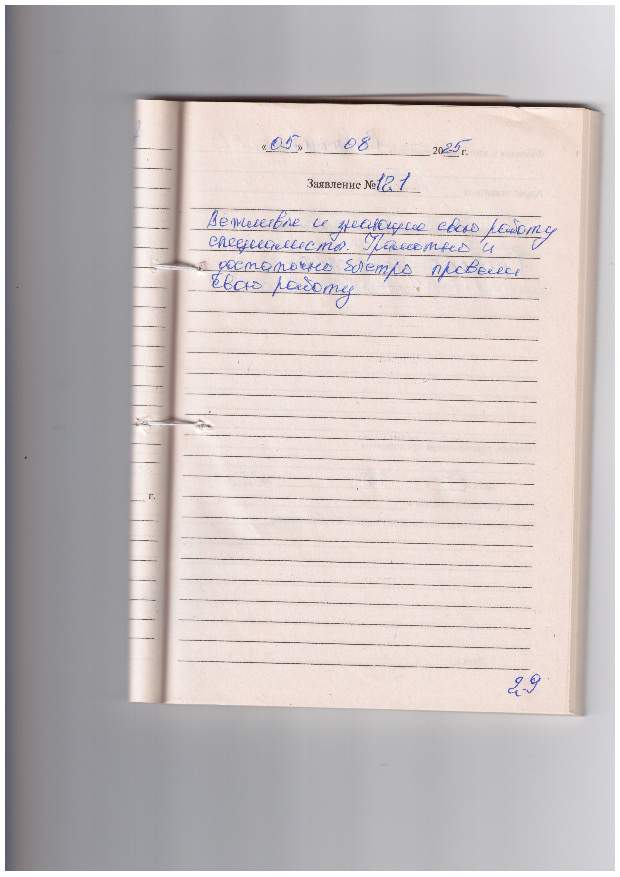 «05» 08 2025 г.
Заявление № 121
Вежливые и знающие свою работу
специалисты. Грамотно и
достаточно быстро провели
свою работу
г.
29